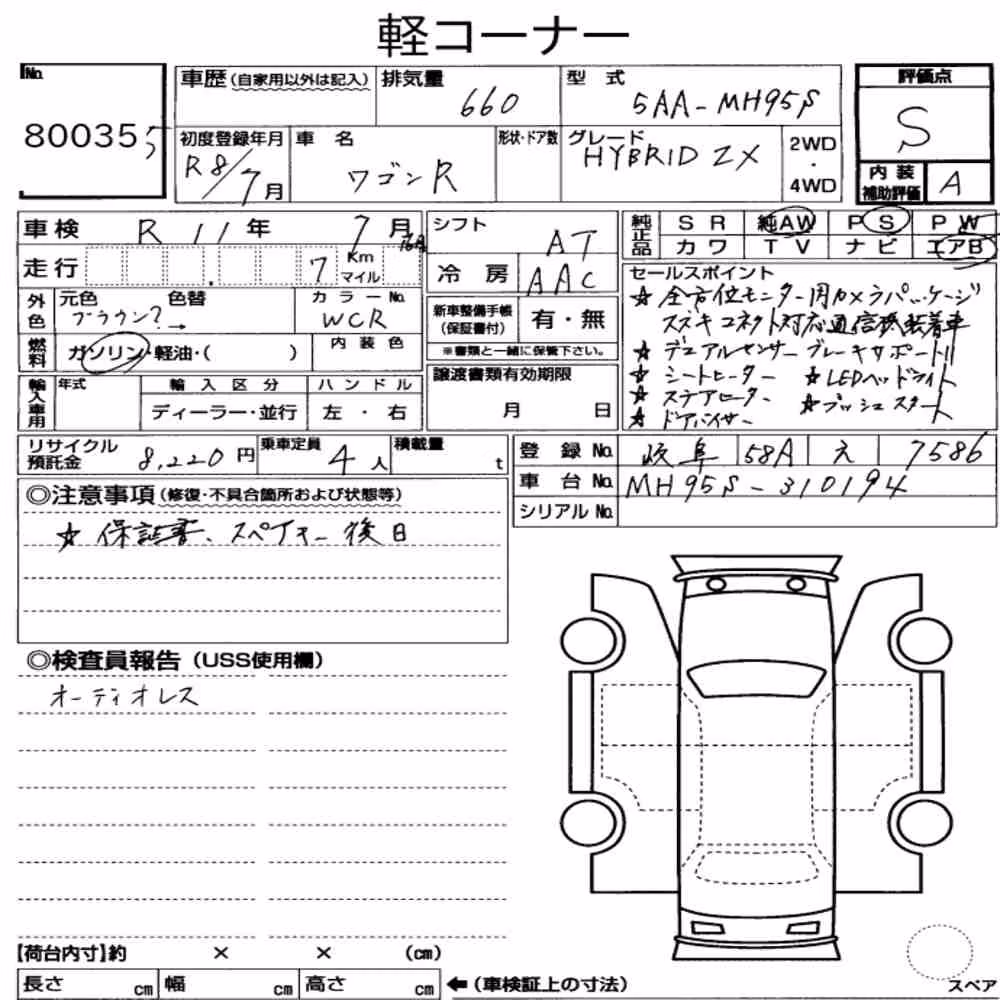 軽コーナー
No. 80035 5
車歴 (自家用以外は記入) 排気量 660 型式 5AA-MH95S 評価点 S
初度登録年月 R8/7月 車名 ワゴンR 形状・ドア数 グレード HYBRID ZX 2WD・4WD
内装補助評価 A
車検 R 11年 7月 シフト AT 純正品 SR 純AW PS PW
カワ TV ナビ エアB
走行 7 Km マイル 冷房 AAC
セールスポイント
☆ 全方位モニター用カメラパッケージ
スズキコネクト対応通信機装着車
☆ デュアルセンサーブレーキサポートII
☆ シートヒーター ☆ LEDヘッドライト
☆ ステアヒーター ☆ プッシュスタート
☆ ドアバイザー
外色 元色 ブラウン? → 色替 カラーNo. WCR
新車整備手帳 (保証書付) 有・無
※書類と一緒に保管下さい。
燃料 ガソリン・軽油・( ) 内装色
輸入車用 年式 輸入区分 ハンドル
ディーラー・並行 左・右
譲渡書類有効期限
月 日
リサイクル預託金 8,220円 乗車定員 4人 積載量 t
登録No. 岐阜 58A え 7586
車台No. MH95S-310194
シリアルNo.
◎注意事項 (修復・不具合箇所および状態等)
☆ 保証書、スペアキー後日
◎検査員報告 (USS使用欄)
オーディオレス
【荷台内寸】約 × × (cm)
長さ cm 幅 cm 高さ cm ←(車検証上の寸法)
スペア